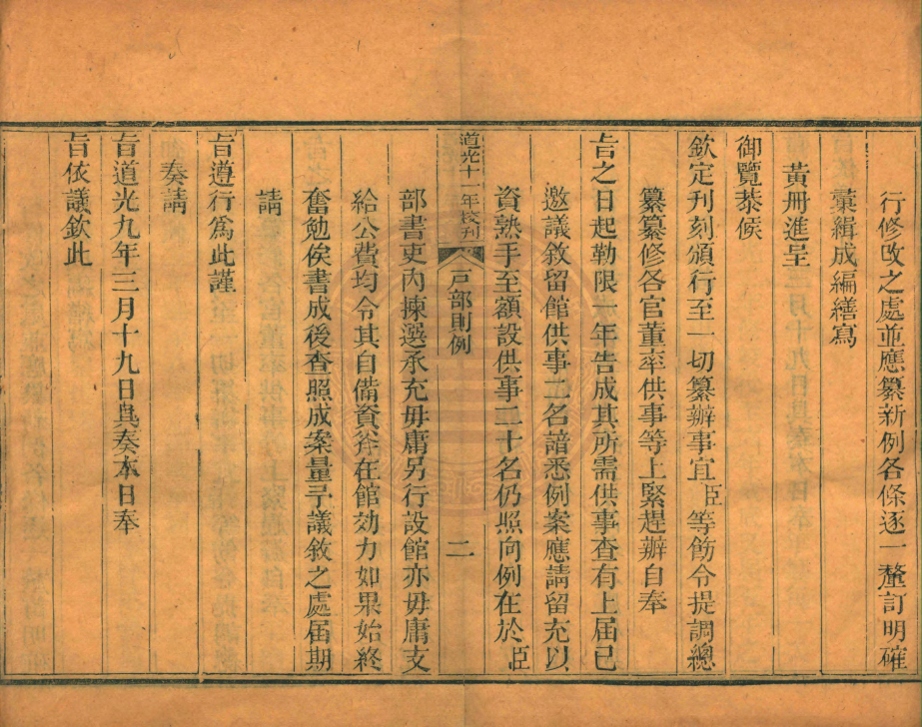 行修改之處並應纂新例各條逐一釐訂明確
彙緝成編繕寫
黃冊進呈
御覽恭候
欽定刋刻頒行至一切纂辦事宜臣等飭令提調總
纂纂修各官董率供事等上緊趕辦自奉
旨之日起勒限一年告成其所需供事查有上屆已
邀議敘留館供事二名諳悉例案應請留充以
資熟手至額設供事二十名仍照向例在於臣
道光十一年校刋
戸部則例
二
部書吏內揀選承充毋庸另行設館亦毋庸支
給公費均令其自備資斧在館効力如果始終
奮勉俟書成後查照成案量予議敘之處屆期
請
旨遵行爲此謹
奏請
旨道光九年三月十九日具奏本日奉
旨依議欽此